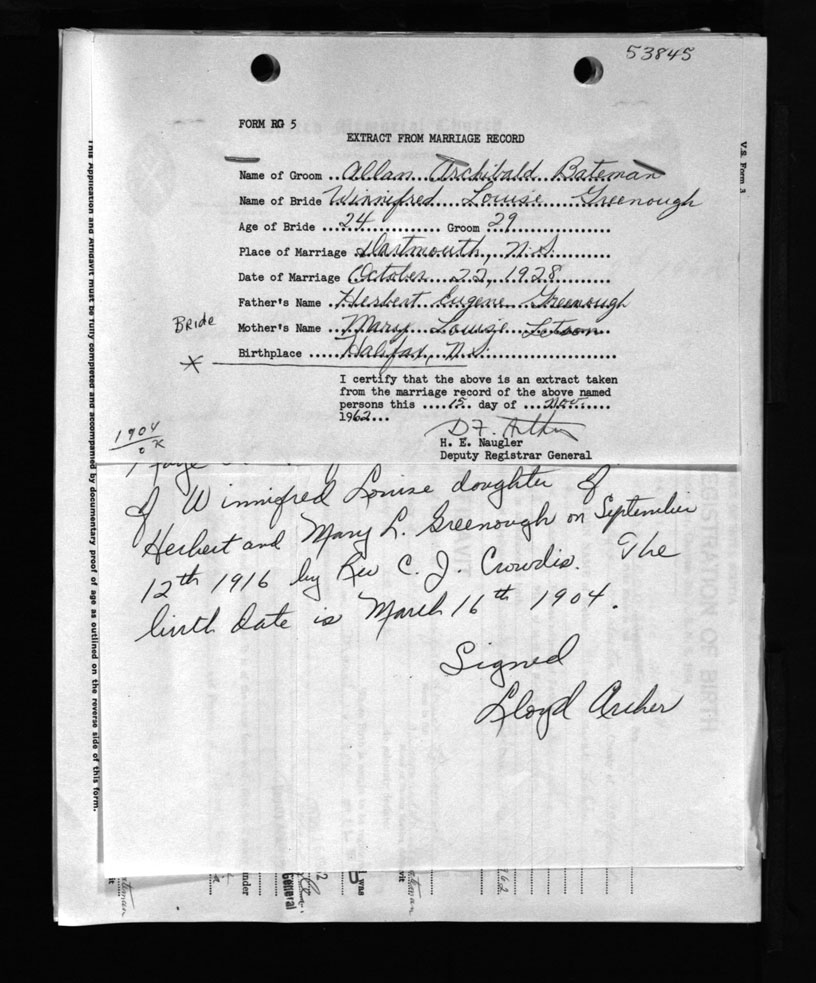 53845
FORM RG 5
EXTRACT FROM MARRIAGE RECORD
Name of Groom ..Allan Archibald Bateman
Name of Bride Winnifred Louise Greenough
Age of Bride ...24... Groom 29
Place of Marriage Dartmouth, N.S.
Date of Marriage October 22, 1928
Father's Name ..Herbert Eugene Greenough
Bride
Mother's Name ..Mary Louise
Birthplace ....Halifax, N.S.
*
I certify that the above is an extract taken
from the marriage record of the above named
persons this ....15. day of ...Nov......
1962...
H. E. Naugler
Deputy Registrar General
1904
OK
of Winnifred Louise daughter of
Herbert and Mary L. Greenough on September
12th 1916 by Rev C. J. Crowdis. The
birth date is March 16th 1904.
Signed
Lloyd Archer
V.S. Form 3
This Application and Affidavit must be fully completed and accompanied by documentary proof of age as outlined on the reverse side of this form.
under
General
was